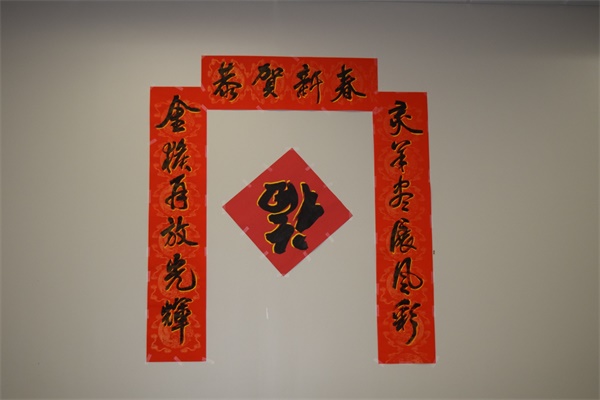 恭賀新春
灵羊尽展风彩
金猴再放光輝
福